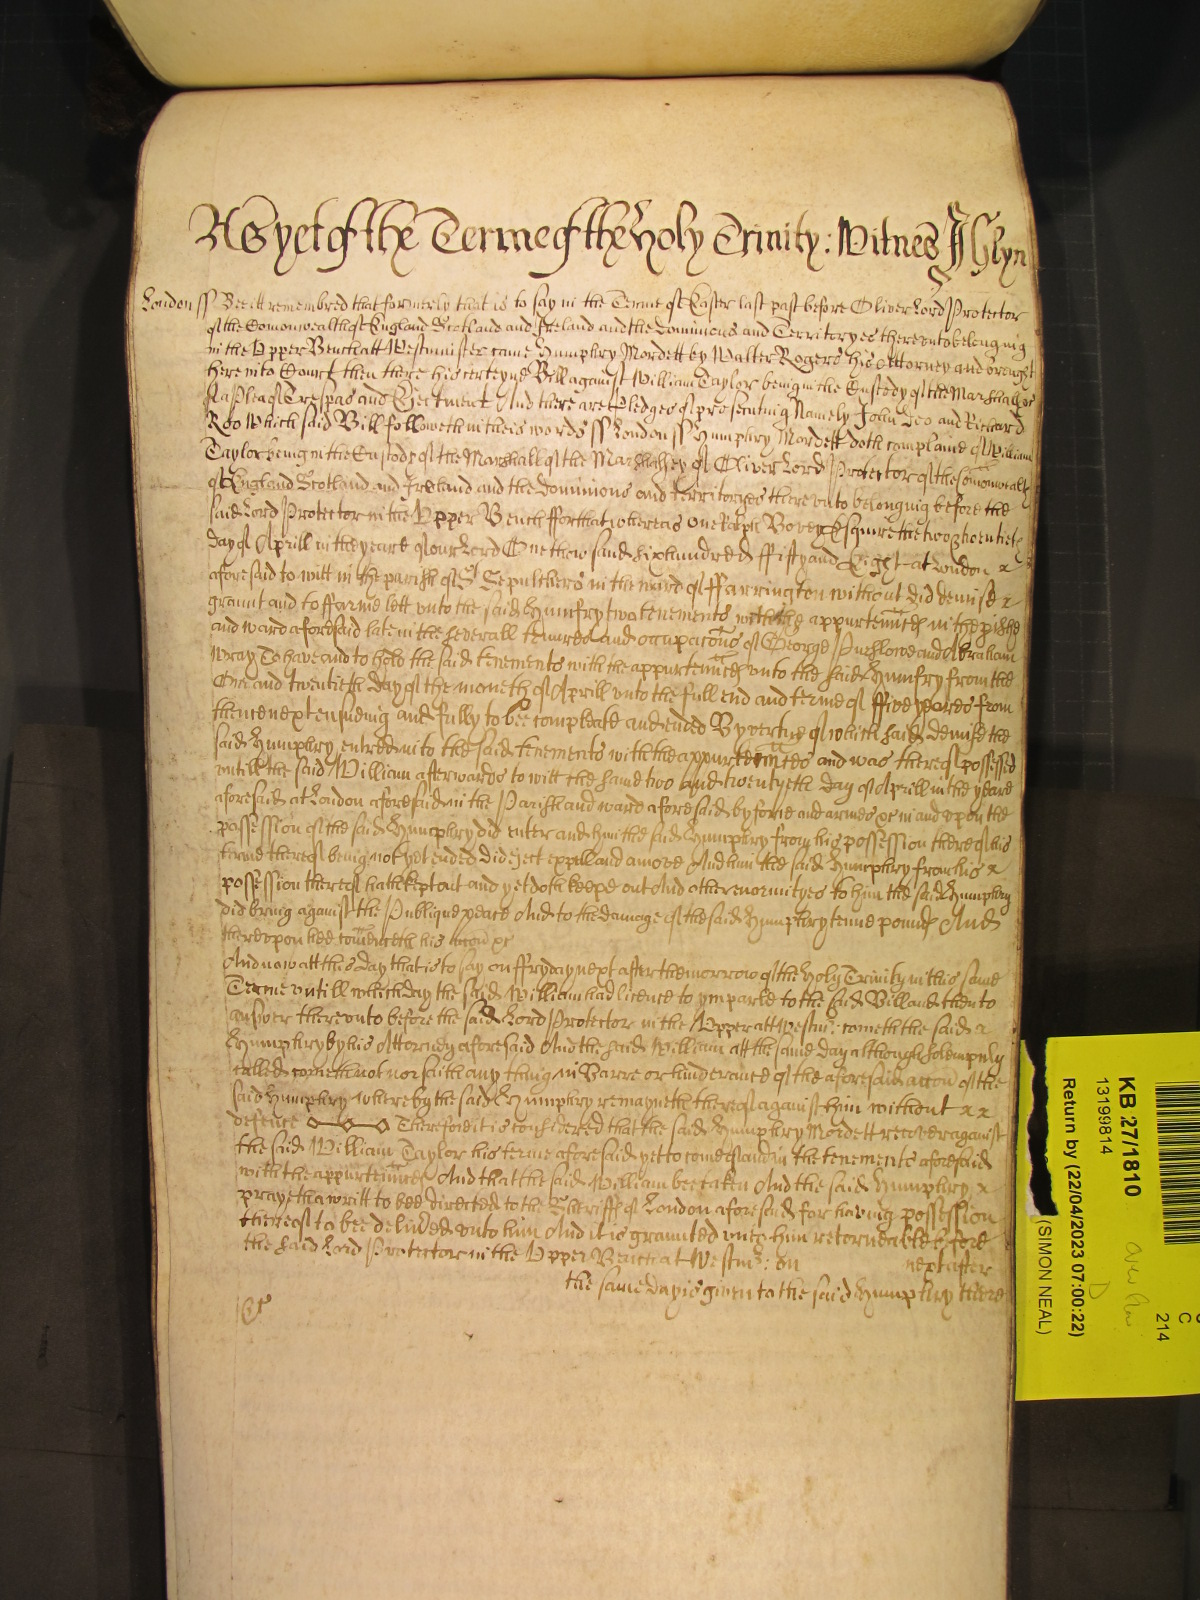 As yet of the Terme of the Holy Trinity: Witnes J Glyn
London ss Bee itt remembred that formerly that is to say in the Terme of Easter last past before Oliver Lord Protector
of the Comonwealth of England Scotland and Ireland and the Dominions and Territoryes thereunto belonging
in the Upper Bench att Westminster came Humphry Mordett by Walter Rogers his Attorney and brought
here into Court then there his certeyne Bill against William Taylor being in the Custody of the Marshall &c
of a Plea of Trespas and Ejectment And there are Pledges of prosecuting Namely John Doo and Richard
Roo Which said Bill followeth in theis words ss London ss Humphry Mordett doth complaine of William
Taylor being in the Custody of the Marshall of the Marshalsey of Oliver Lord Protector of the Comonwealth
of England Scotland and Ireland and the Dominions and Territoryes thereunto belonging before the
said Lord Protector in the Upper Bench ffor that whereas one Ralph Bovey Esquire the two & twentieth
day of Aprill in the yeare of our Lord One thowsand six hundred ffifty and Eight at London x
aforesaid to witt in the parish of St Sepulchers in the ward of ffarrington without did demise x
graunt and to ffarme lett unto the said Humfry two tenements with the appurtennces in the pishe
and ward aforesaid late in the severall tenures and occupacons of George and Abraham
Wray To have and to hold the said tenements with the appurtennces unto the said Humfry from the
One and twentieth day of the moneth of Aprill unto the full end and terme of ffive yeares from
thence next ensueing and fully to bee compleate and ended By vertue of which said demise the
said Humphry entred into the said tenements with the appurtennces and was thereof possessed
untill the said William afterwards to witt the same two and twentyeth day of Aprill in the yeare
aforesaid at London aforesaid in the Parish and ward aforesaid by force and armes &c in and upon the
possession of the said Humphry did enter and him the said Humphry from his possession thereof his
terme thereof being not yet ended did eject expell and amove And him the said Humphry from his x
possession thereof hath kept out and yet doth keepe out And other enormityes to him the said Humphry
did bring against the Publique peace And to the damage of the said Humphry tenne pounds And
thereupon hee comenceth his accon &c
And now att this day that is to say on ffryday next after the morrow of the Holy Trinity in this same
Terme untill which day the said William had licence to imparle to the said Bill and then to
answer thereunto before the said Lord Protector in the Upper att Westmr: cometh the said x
Humphry by his Attorney aforesaid And the said William att the same day although solempnly
called cometh not nor saith any thing in Barre or hinderance of the aforesaid accon of the
said Humphry whereby the said Humphry remayneth thereof against him without x x
defence Therefore it is considered that the said Humphry Mordett recover against
the said William Taylor his terme aforesaid yet to come of and in the tenements aforesaid
with the appurtennces And that the said William bee taken And the said Humphry x
prayeth a writt to bee directed to the Sheriffs of London aforesaid for having possession
thereof to bee delivered unto him And it is graunted unto him retorneable before
the said Lord Protector in the Upper Bench at Westmr: on next after
the same day is given to the said Humphry there
KB 27/1810
13199814
Return by (22/04/2023 07:00:22)
(SIMON NEAL)
C
214
D